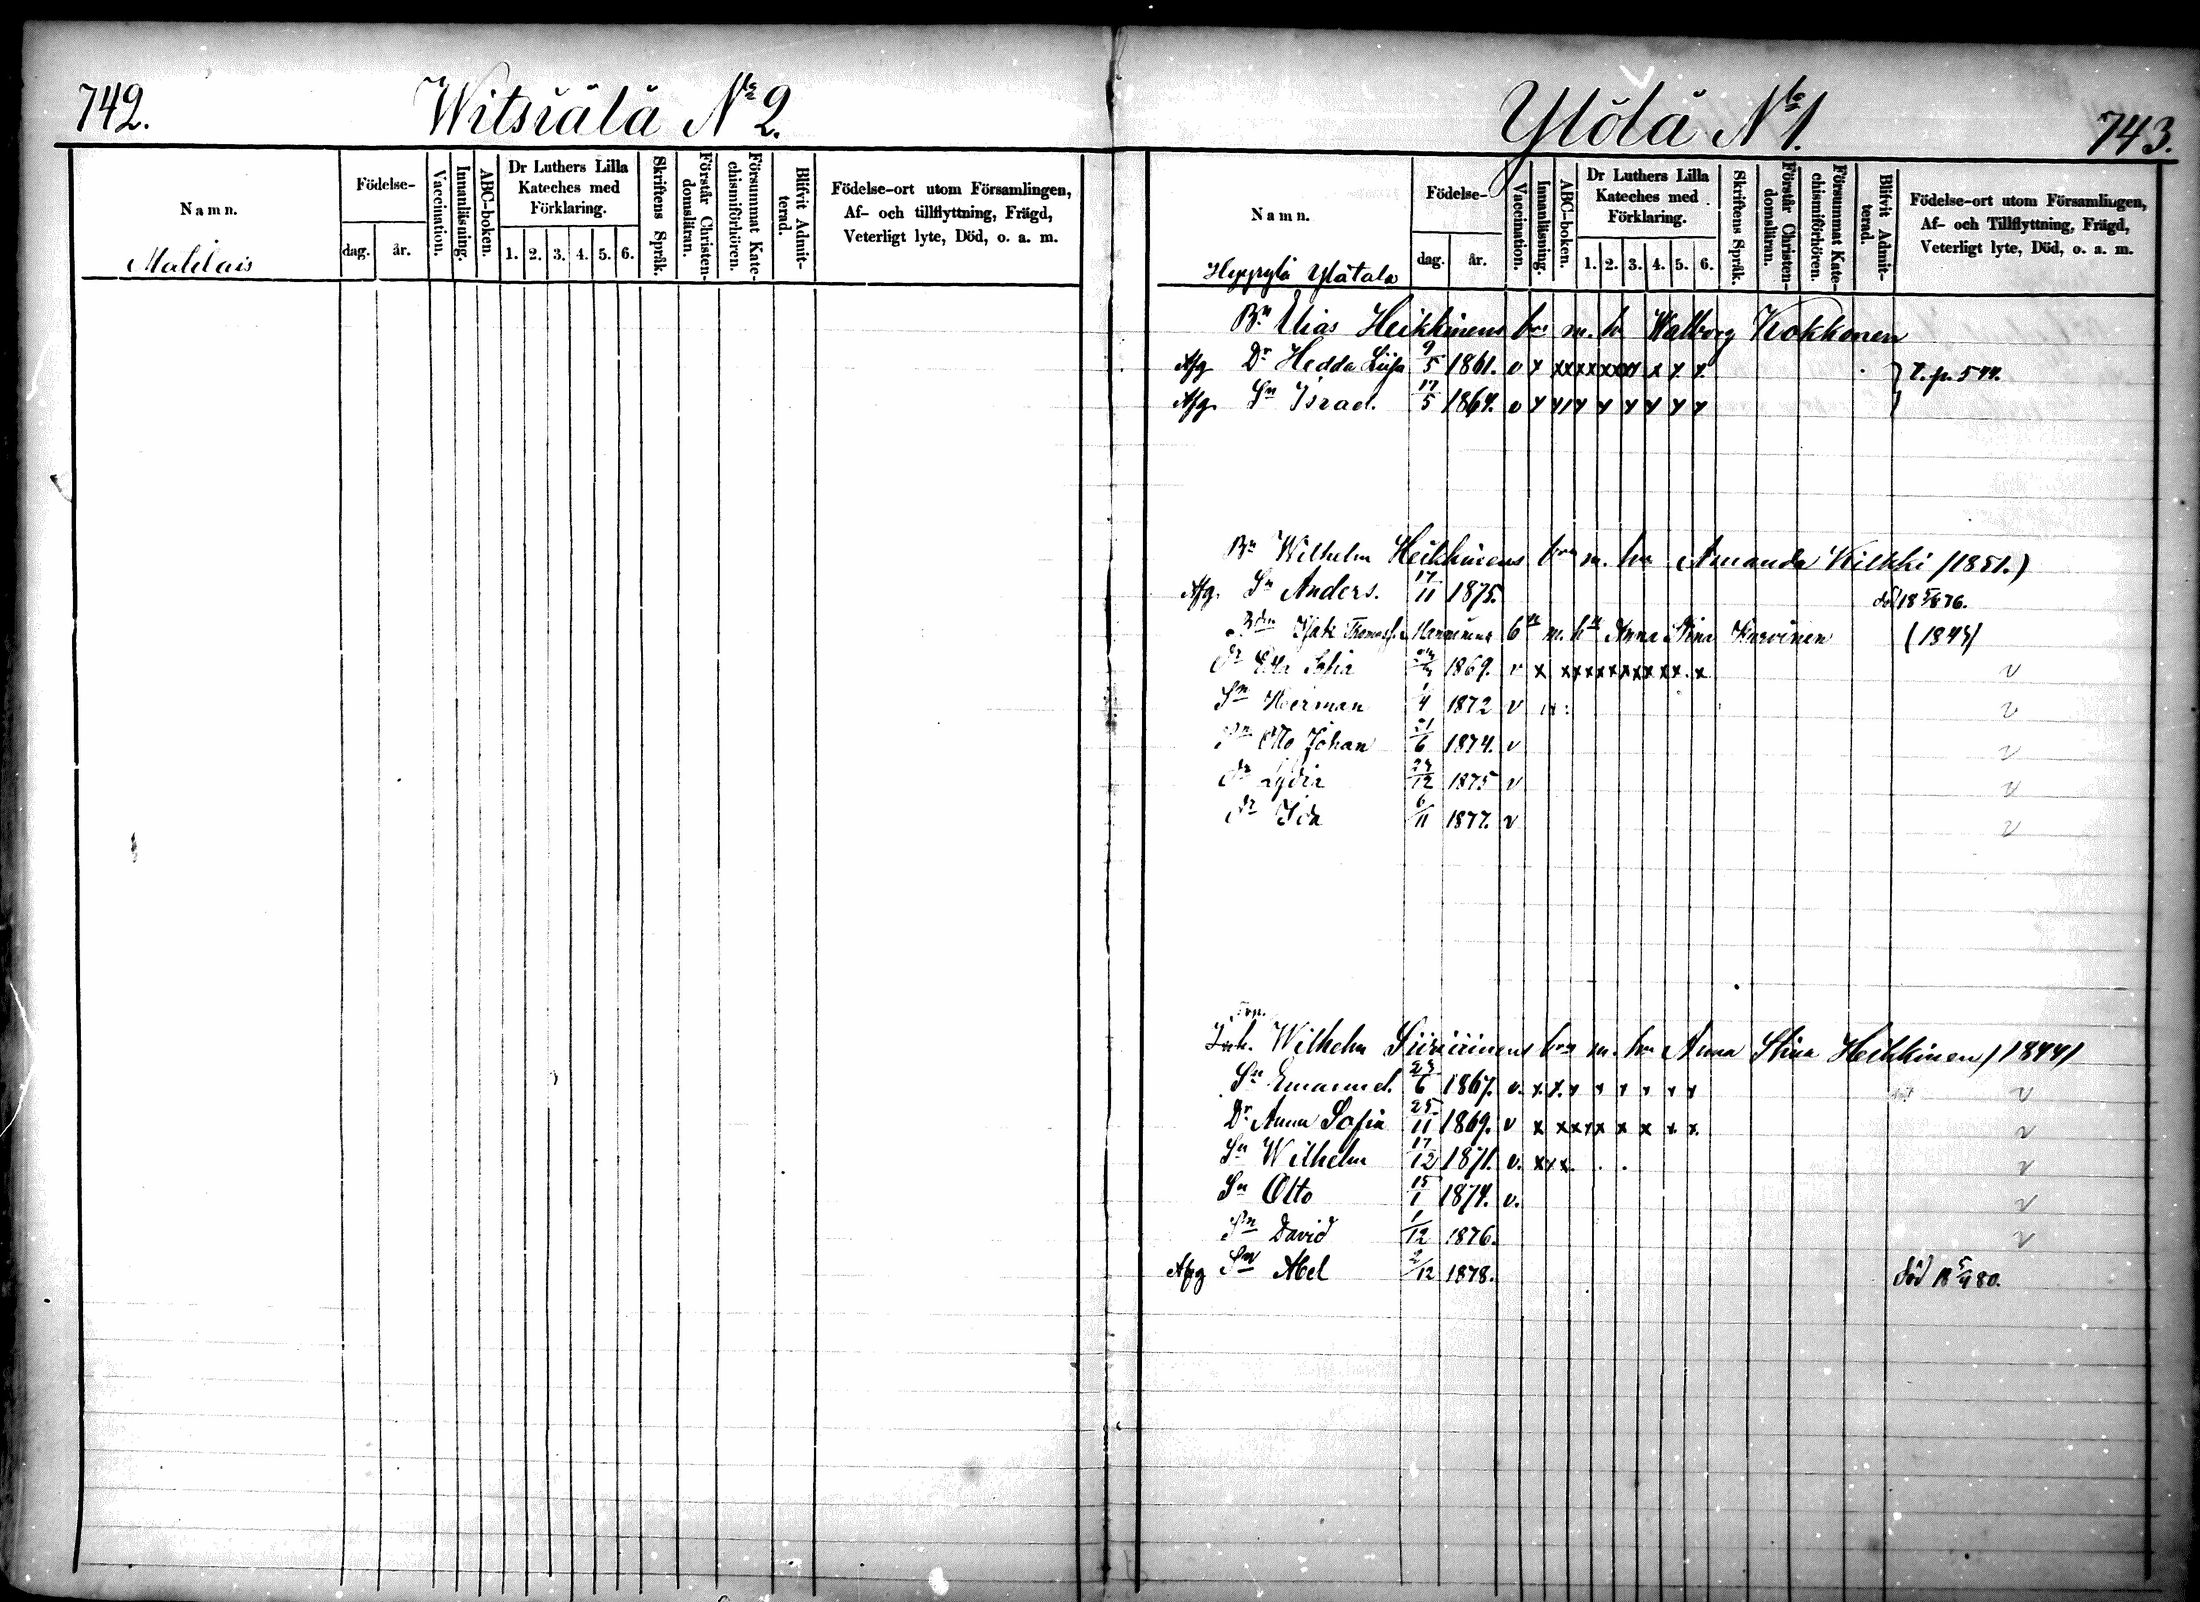 742.
Witsiälä No 2.
Namn.
Födelse-
dag.
år.
Vaccination.
Innanläsning.
ABC-boken.
Dr Luthers Lilla
Kateches med
Förklaring.
1. 2. 3. 4. 5. 6.
Skriftens Språk.
Förstår Christen-
domsläran.
Försummat Kate-
chismiförhören.
Blifvit Admit-
terad.
Födelse-ort utom Församlingen,
Af- och tillflyttning, Frägd,
Veterligt lyte, Död, o. a. m.
Ylölä No 1.
743.
Namn.
Födelse-
dag.
år.
Vaccination.
Innanläsning.
ABC-boken.
Dr Luthers Lilla
Kateches med
Förklaring.
1. 2. 3. 4. 5. 6.
Skriftens Språk.
Förstår Christen-
domsläran.
Försummat Kate-
chismiförhören.
Blifvit Admit-
terad.
Födelse-ort utom Församlingen,
Af- och Tillflyttning, Frägd,
Veterligt lyte, Död, o. a. m.
Hyyrylä Ylätalo
Bn Elias Heikkinens bn m. h. Walborg Kokkonen
Afg Dr Hedda Liisa 9/5 1861. v x xxxxxxx x x x
Afg. Sn Israel. 17/5 1864. v x x x x x x x x x
Bn Wilhelm Heikkinens brn m. hn Amanda Kilkki (1851.)
Afg. Sn Anders. 17/11 1875. död 18 5/ 76.
6n m. hn Anna Stina Karvinen
dr Eva Sofia 1869. v x xxxxxxxxx x v
Sn Herman 1/4 1872 v v
Sn Otto Johan 21/6 1874. v v
dr Lydia /12 1875 v v
dr Ida 6/11 1877. v v
Inh. Wilhelm brn m. hn Anna Stina Heikkinen (1844)
Sn Emanuel. 23/6 1867. v. x. x. x x x x x x v
Dr Anna Sofia 25/11 1869. v x xxxx x x x x. v
Sn Wilhelm 17/12 1871. v. xxx. . . v
Sn Otto 15/1 1874. v. v
Sn David 1/12 1876. v
Afg Sn Abel 2/12 1878. död 18 5/4 80.